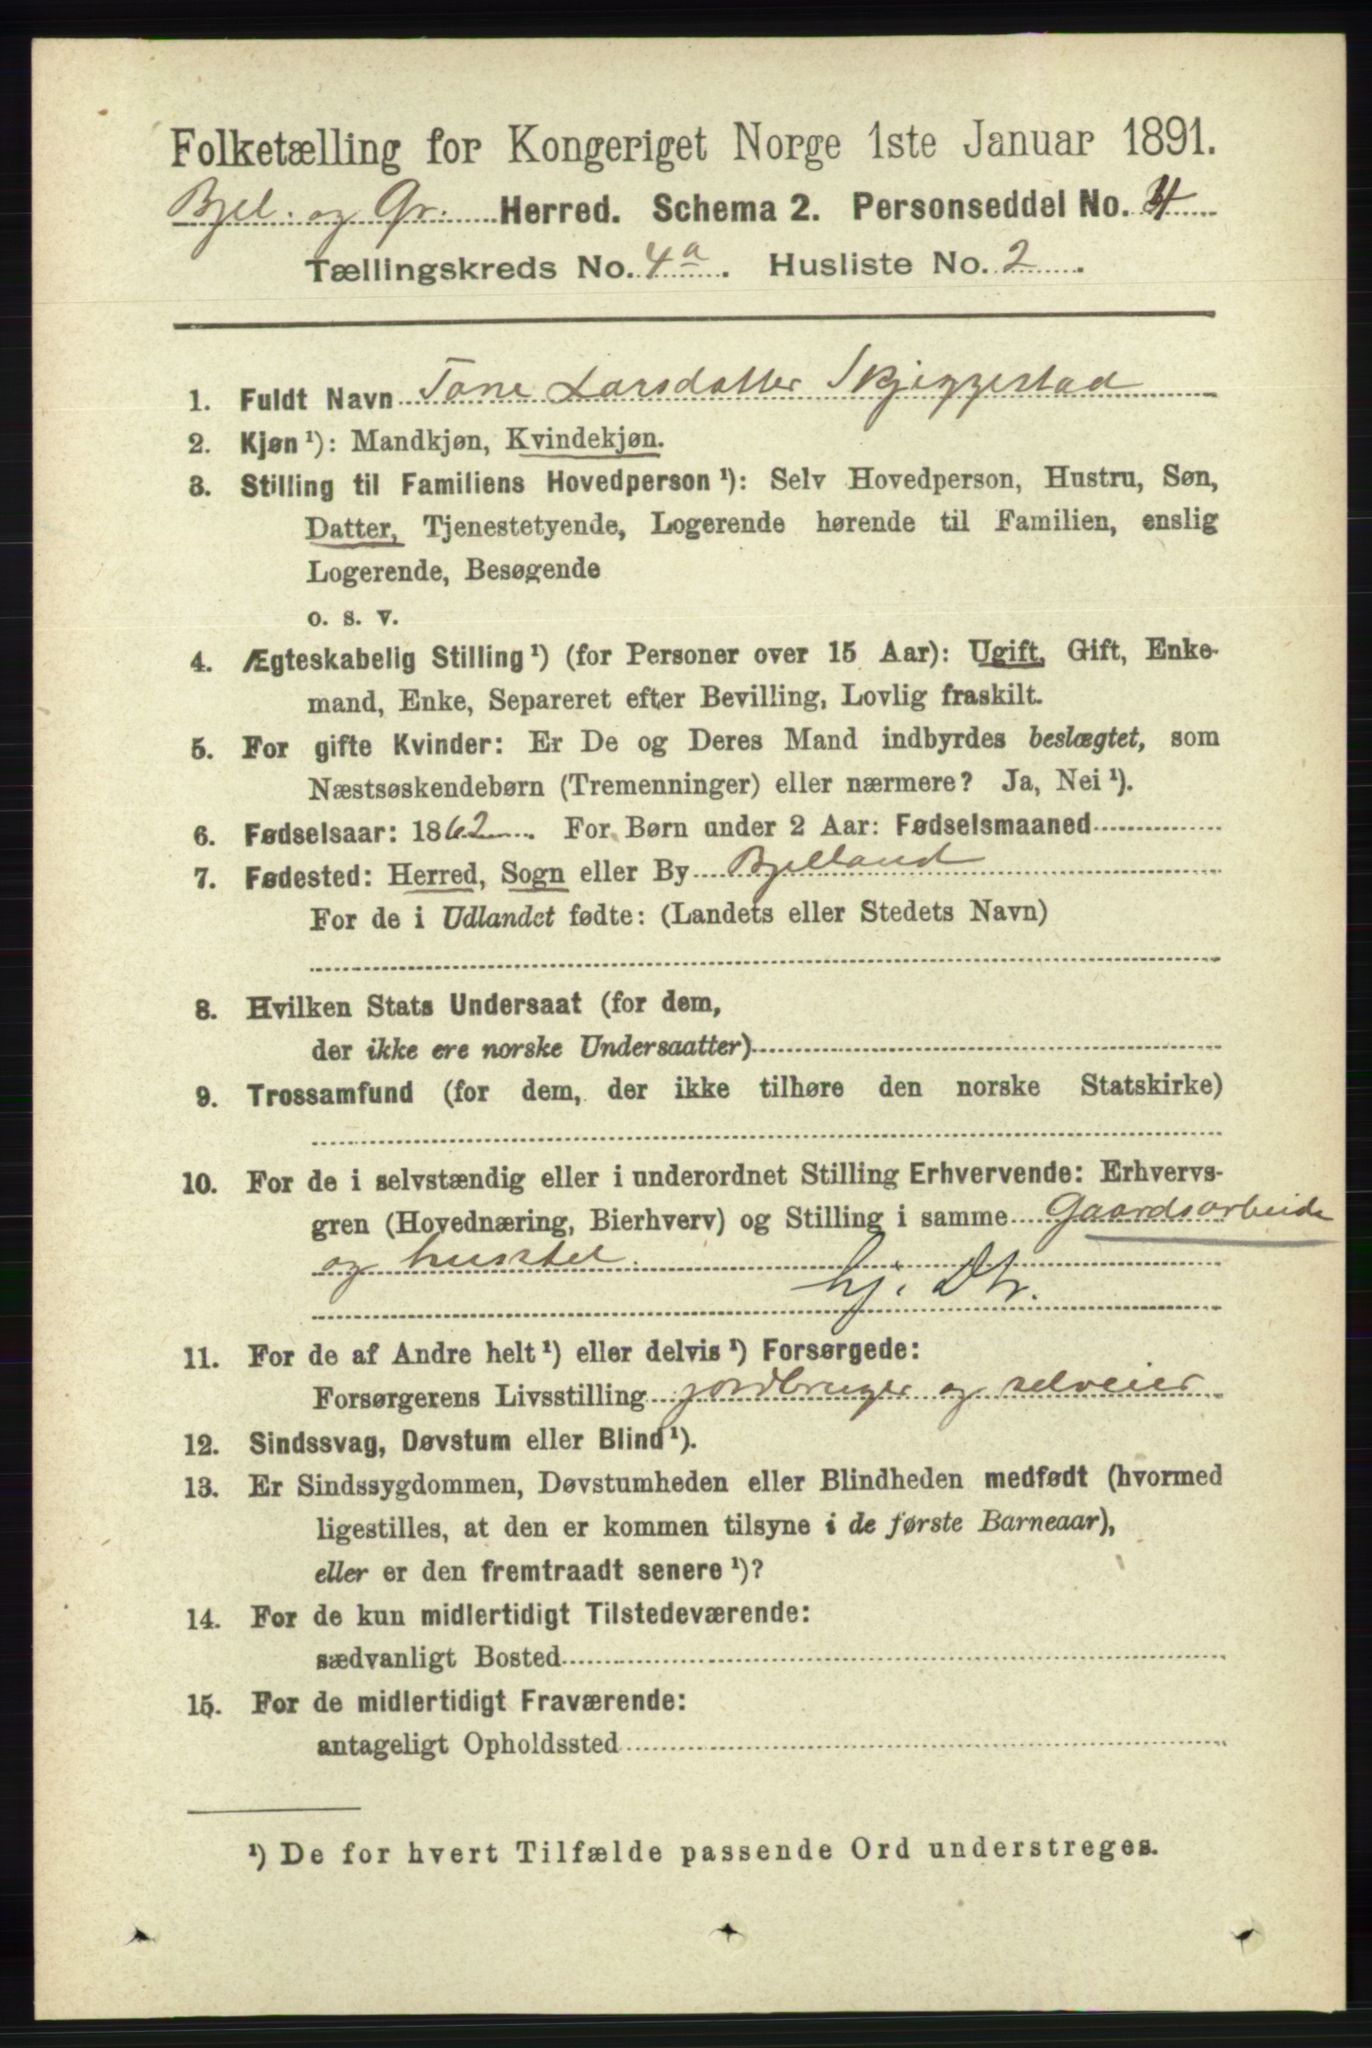 Folketælling for Kongeriget Norge 1ste Januar 1891.
Bjel. og Gr. Herred. Schema 2. Personseddel No. 4
Tællingskreds No. 4a. Husliste No. 2.
1. Fuldt Navn Tone Larsdatter Skjeggestad
2. Kjøn ¹): Mandkjøn, Kvindekjøn.
3. Stilling til Familiens Hovedperson ¹): Selv Hovedperson, Hustru, Søn,
Datter, Tjenestetyende, Logerende hørende til Familien, enslig
Logerende, Besøgende
o. s. v.
4. Ægteskabelig Stilling ¹) (for Personer over 15 Aar): Ugift, Gift, Enke-
mand, Enke, Separeret efter Bevilling, Lovlig fraskilt.
5. For gifte Kvinder: Er De og Deres Mand indbyrdes beslægtet, som
Næstsøskendebørn (Tremenninger) eller nærmere? Ja, Nei ¹).
6. Fødselsaar: 1862. For Børn under 2 Aar: Fødselsmaaned
7. Fødested: Herred, Sogn eller By Bjelland
For de i Udlandet fødte: (Landets eller Stedets Navn)
8. Hvilken Stats Undersaat (for dem,
der ikke ere norske Undersaatter)
9. Trossamfund (for dem, der ikke tilhøre den norske Statskirke)
10. For de i selvstændig eller i underordnet Stilling Erhvervende: Erhvervs-
gren (Hovednæring, Bierhverv) og Stilling i samme Gaardsarbeide
og husstel.
hj. Dtr.
11. For de af Andre helt ¹) eller delvis ¹) Forsørgede:
Forsørgerens Livsstilling jordbruger og selveier
12. Sindssvag, Døvstum eller Blind ¹).
13. Er Sindssygdommen, Døvstumheden eller Blindheden medfødt (hvormed
ligestilles, at den er kommen tilsyne i de første Barneaar),
eller er den fremtraadt senere ¹)?
14. For de kun midlertidigt Tilstedeværende:
sædvanligt Bosted
15. For de midlertidigt Fraværende:
antageligt Opholdssted
¹) De for hvert Tilfælde passende Ord understreges.